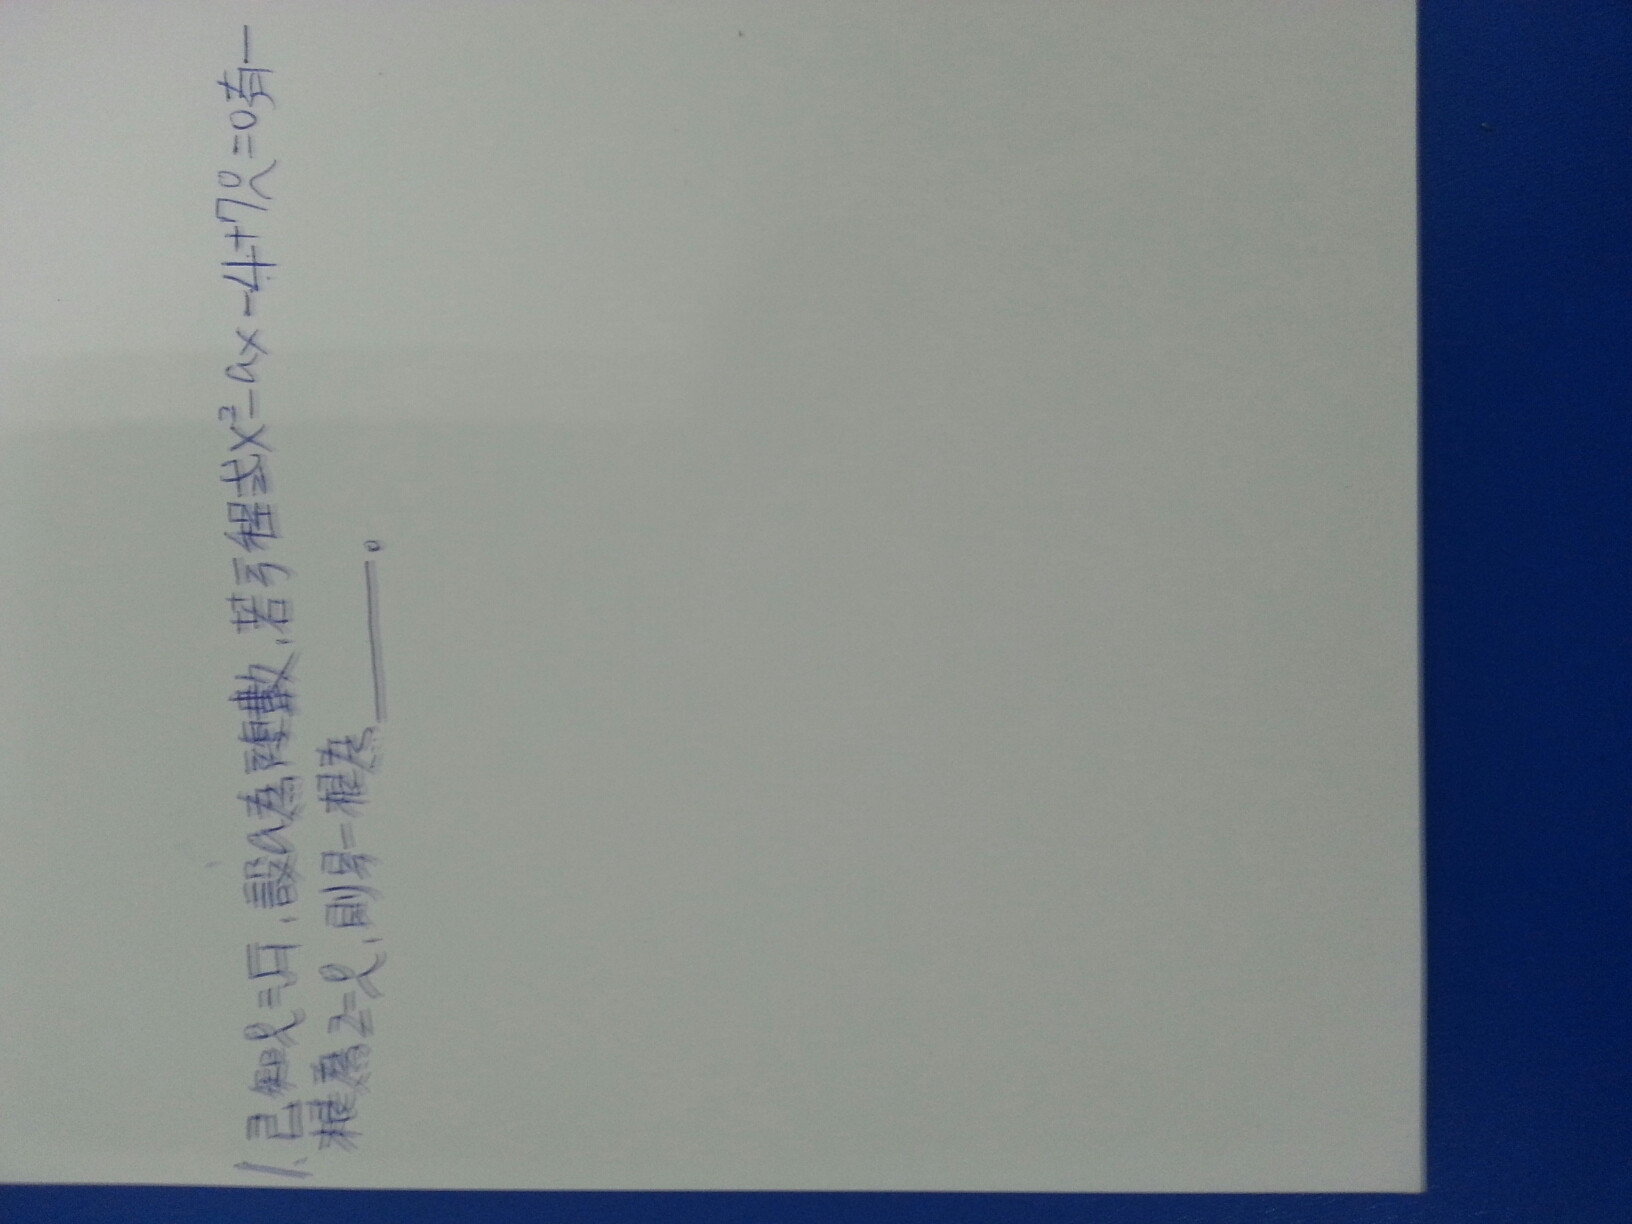 1. 已知i=√-1, 設a為複數, 若方程式x²-ax-4+7i=0有一
根為2-i, 則另一根為______。